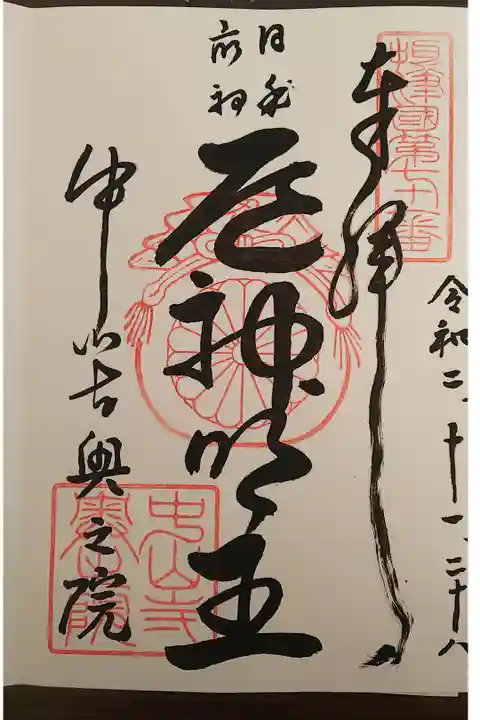 摂津國第七十一番
奉拝
令和二、十一、二十八
日本
最初
厄神明王
中山寺奥之院
中山寺
奥之院